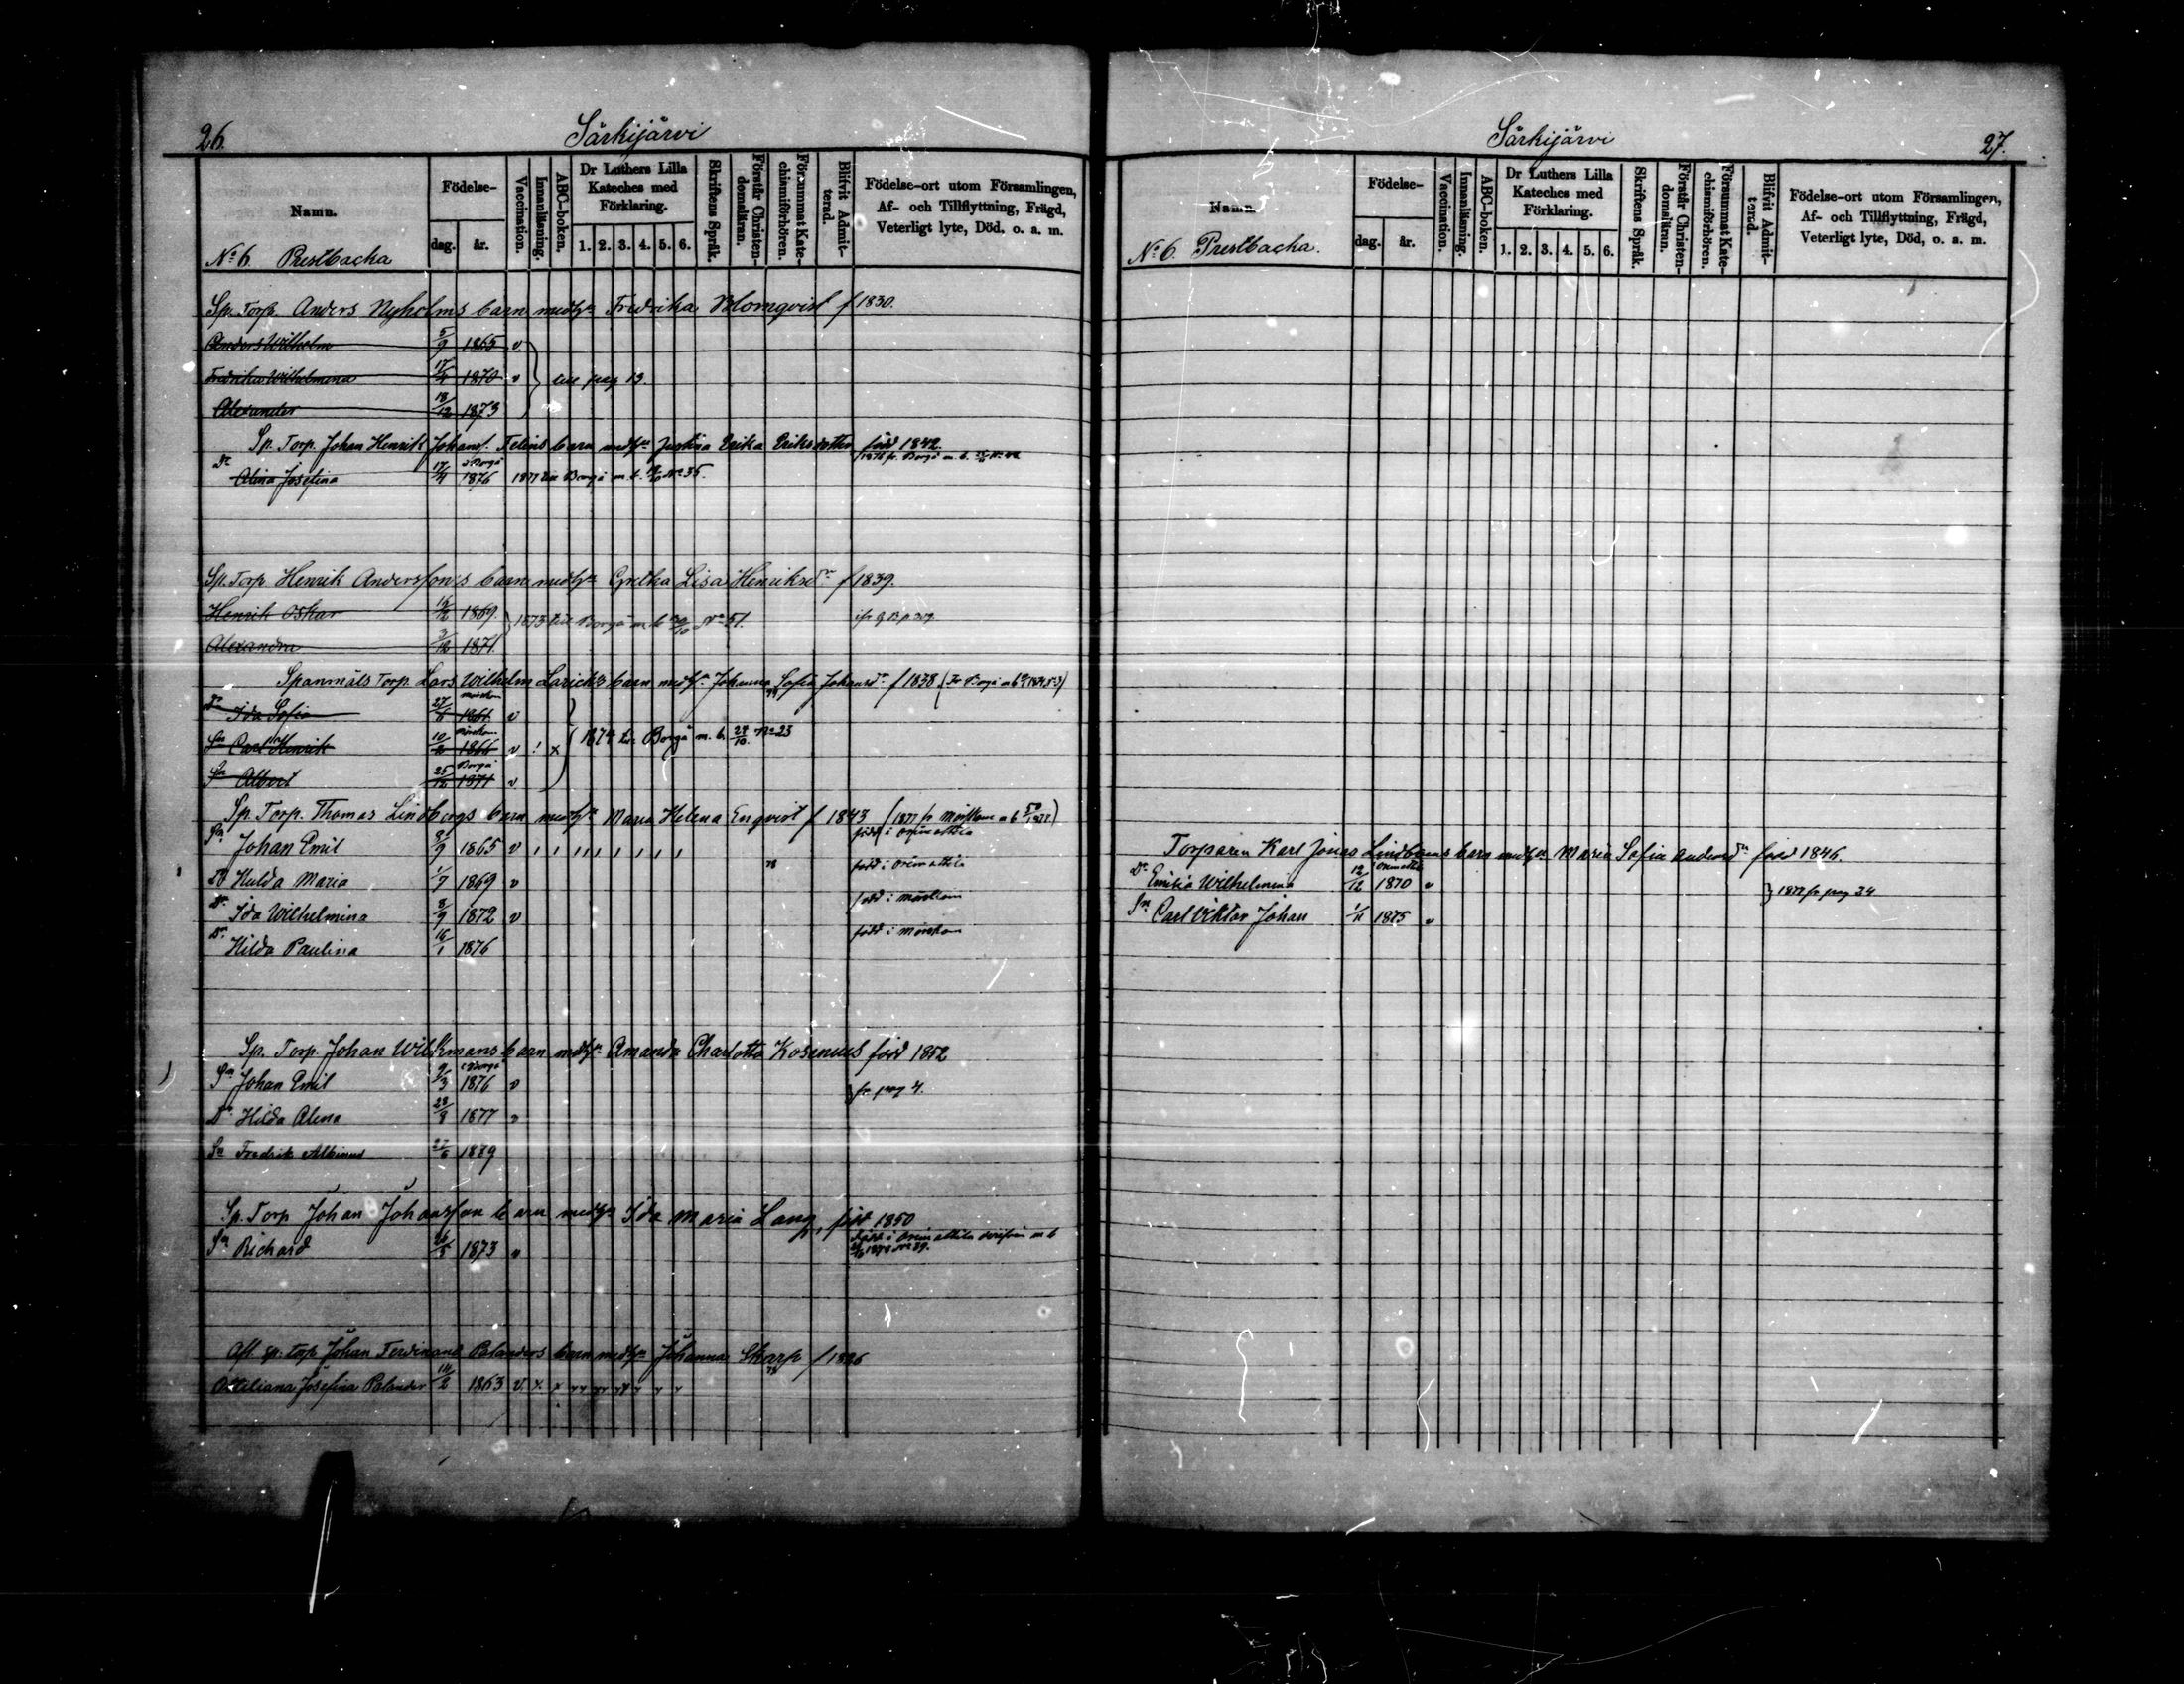 26.
Särkijärvi
Namn.
Födelse-
dag.
år.
Vaccination.
Innanläsning.
ABC-boken.
Dr Luthers Lilla
Kateches med
Förklaring.
1. 2. 3. 4. 5. 6.
Skriftens Språk.
Förstår Christen-
domsläran.
Försummat Kate-
chismiförhören.
Blifvit Admit-
terad.
Födelse-ort utom Församlingen,
Af- och Tillflyttning, Frägd,
Veterligt lyte, Död. o. a. m.
No 6. Prestbacka
Sp. Torp. Anders Nyholms barn med h:n Fredrika Blomqvist f 1830.
Anders Wilhelm 5/9 1865 v
Fredrika Wilhelmina 1870 v pag 13.
Alexander 18/12 1873
Sp. Torp. Johan Henrik Johans. barn med h:n Justina Erika Eriksdotter född 1842.
Dr Alina Josefina 17/4 1876 1877 till Borgå m. b. No 35.
Sp. Torp. Henrik Anderssons barn med h:n Gretha Lisa Henriksdr f 1839.
Henrik Oskar 1869. 1873 till Borgå m. b. 30/10 No 51.
Alexandra 3/12 1871.
Spanmåls Torp. Lars Wilhelm Laricks barn med h:n Johanna Sofia Johansdr f 1838
Dr Ida Sofia 27/6 1861 v
Sn Carl Henrik 10/2 1866 v ! x 1874 till Borgå m. b. 24/10. No 23
Sn Albert 25/12 1871 v Borgå
Sp. Torp. Thomas Lindbergs barn med h:n Maria Helena Enqvist f 1843
Sn Johan Emil 1865 v född i Orimattila
Dr Hulda Maria 1/7 1869 v född i Orimattila
Dr Ida Wilhelmina 8/9 1872 v född i Mörskom
Dr Hilda Paulina 16/1 1876 född i Mörskom
Sp. Torp. Johan Wilkmans barn med h:n Amanda Charlotta Rosenius född 1852
Sn Johan Emil 9/3 1876 v i Borgå fr pag 4.
Dr Hilda Alina 28/8 1877 v
Sn Fredrik Albinus 27/6 1879
Sp. Torp Johan Johansson barn med h:n Ida Maria Lang, född 1850
Sn Richard 26/5 1873 v född i Orimattila derifrån m b
1878 No 39.
Afl. sp. torp Johan Ferdinand Polanders barn med h:n Johanna Skarp f 1826
Ottiliana Josefina Polander 14/2 1863 v. x. x
Särkijärvi
27.
Namn.
Födelse-
dag.
år.
Vaccination.
Innanläsning.
ABC-boken.
Dr Luthers Lilla
Kateches med
Förklaring.
1. 2. 3. 4. 5. 6.
Skriftens Språk.
Förstår Christen-
domsläran.
Försummat Kate-
chismiförhören.
Blifvit Admit-
terad.
Födelse-ort utom Församlingen,
Af- och Tillflyttning, Frägd,
Veterligt lyte, Död, o. a. m.
No 6. Prestbacka.
Torparen Karl Jonas Lindbergs barn med h:n Maria Sofia Andersdr född 1846.
Dr Emilia Wilhelmina 12/12 1870 v Orimattila
Sn Carl Viktor Johan 1/11 1875 v
fr pag 24